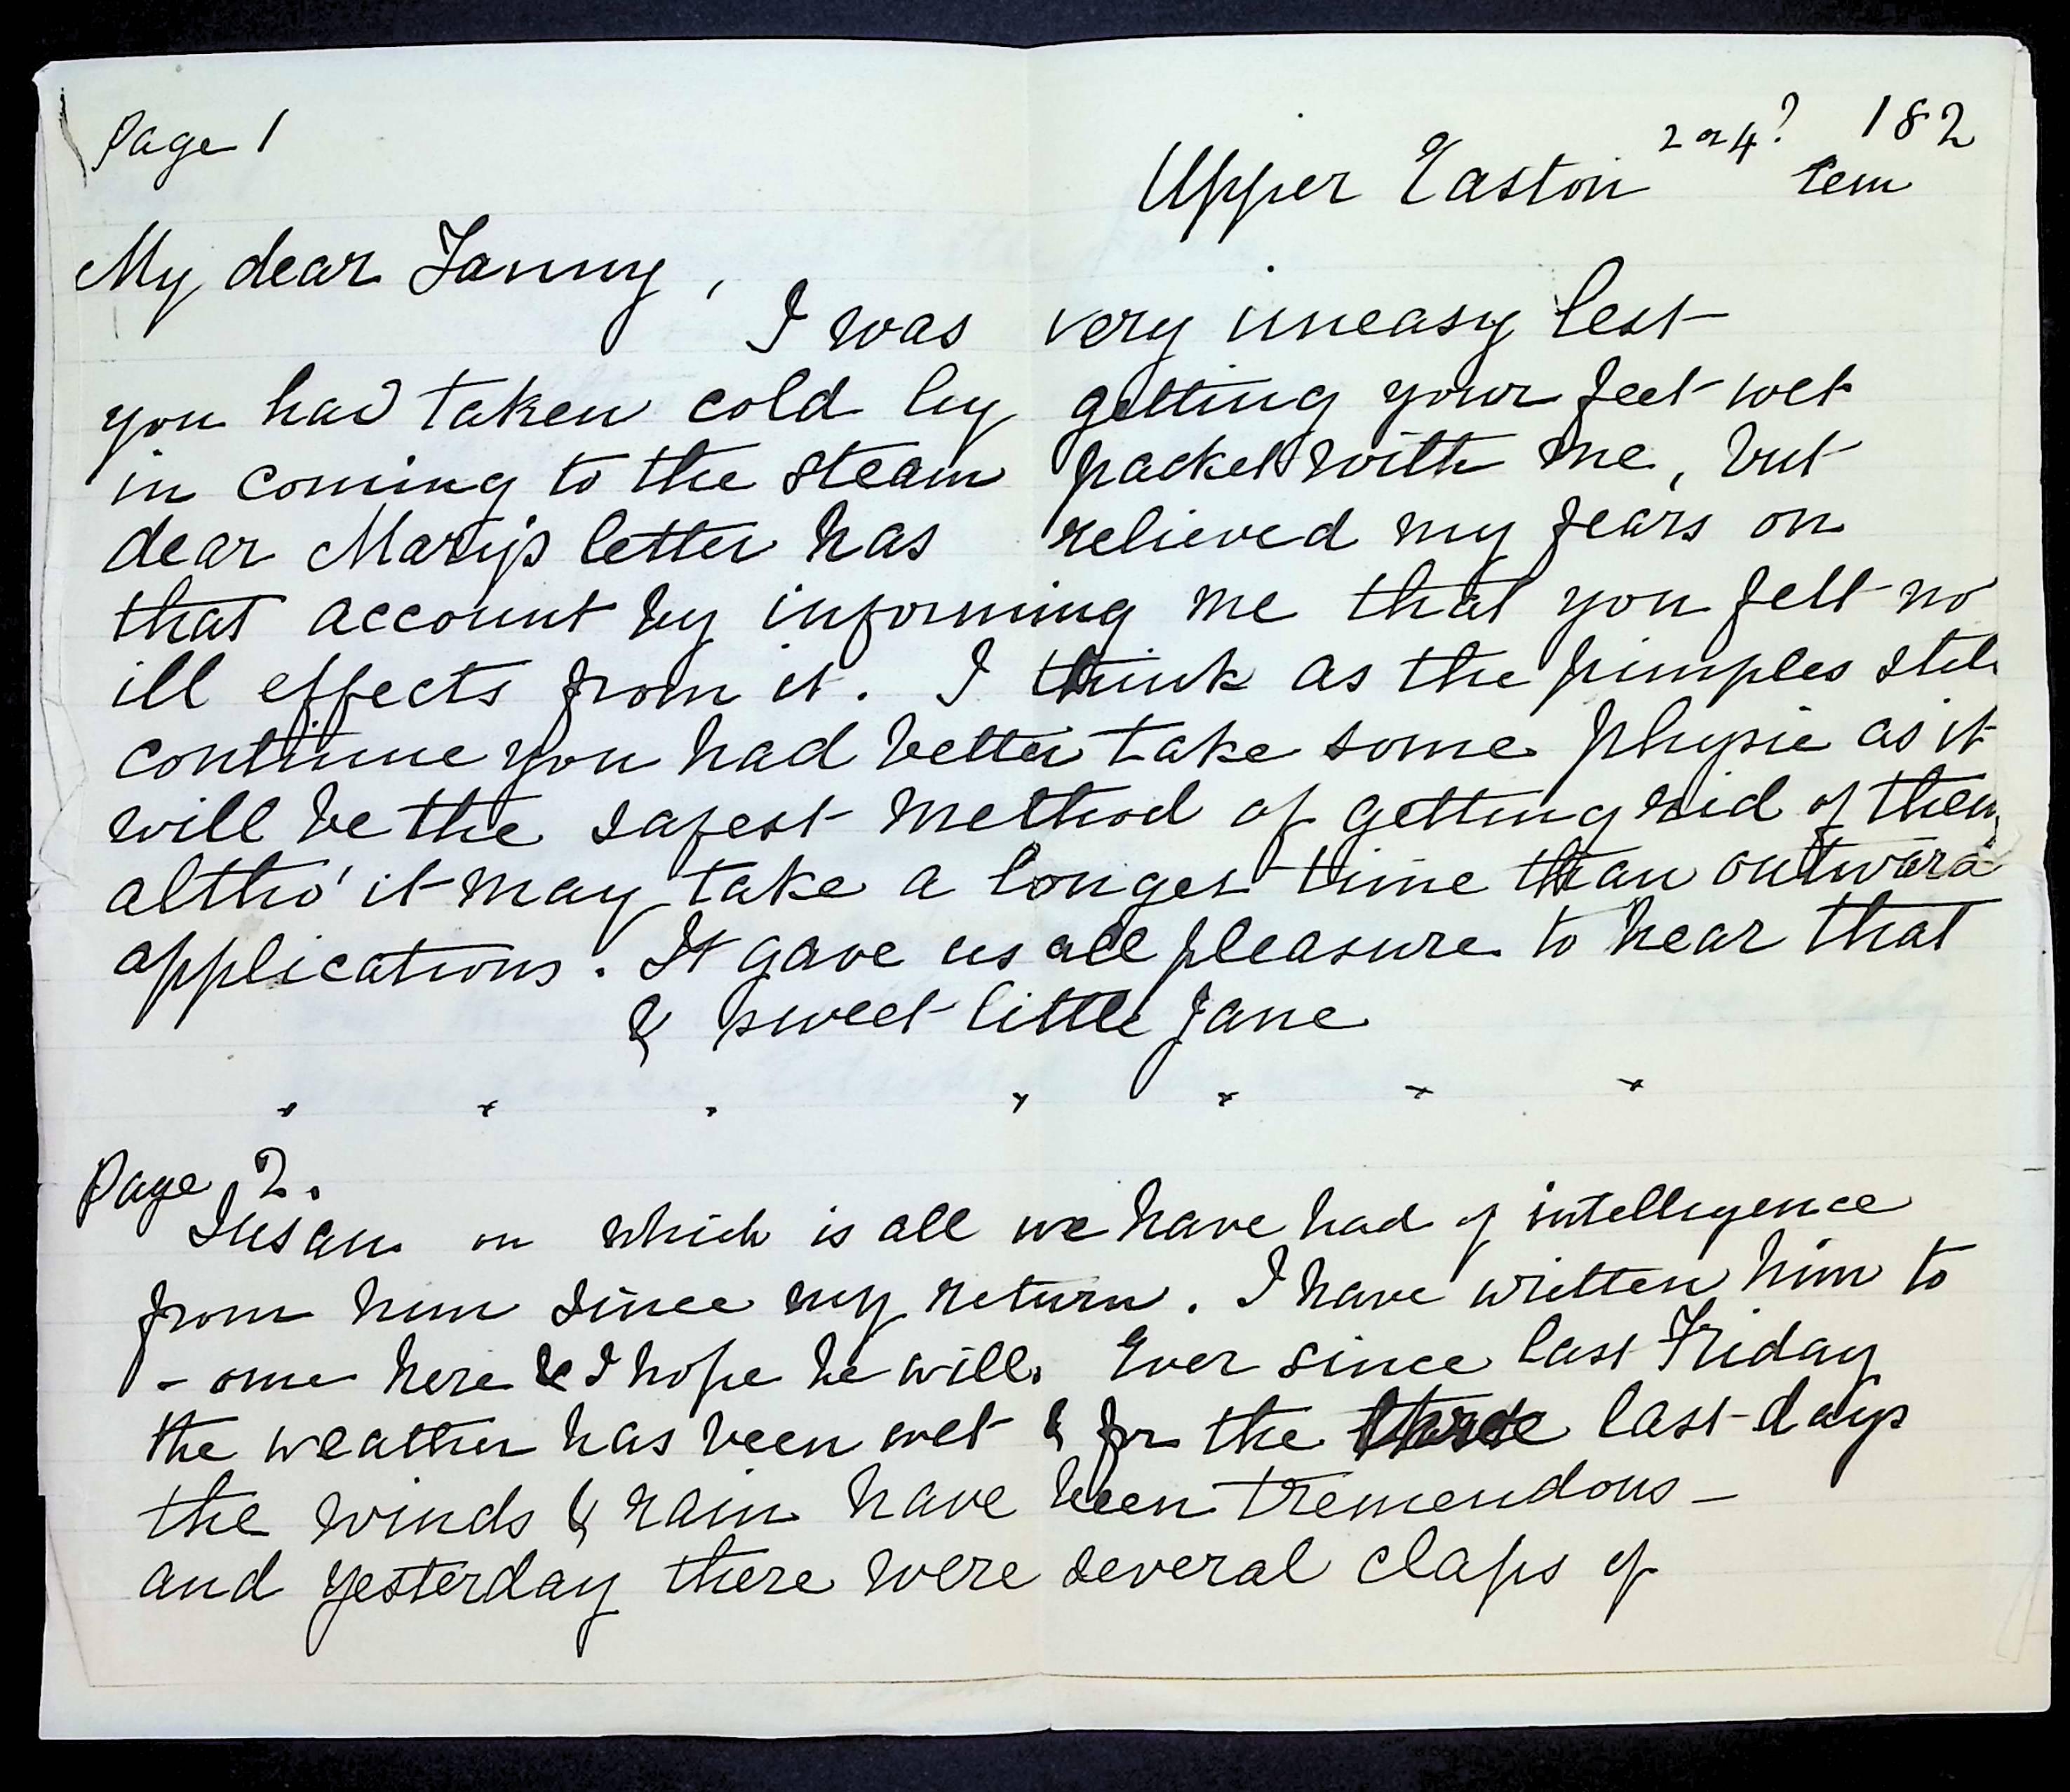 Page 1
2 or 4? 182
Upper Easton tem
My dear Fanny,
I was very uneasy lest
you had taken cold by getting your feet wet
in coming to the steam packet with me, but
dear Mary's letter has relieved my fears on
that account by informing me that you felt no
ill effects from it. I think as the pimples still
continue you had better take some physic as it
will be the safest method of getting rid of them
altho' it may take a longer time than outward
applications. It gave us all pleasure to hear that
& sweet little Jane
Page 2.
Susan on which is all we have had of intelligence
from him since my return. I have written him to
- ome here & I hope he will. Ever since last Friday
the weather has been wet & for the three last days
the winds & rain have been tremendous -
and yesterday there were several claps of